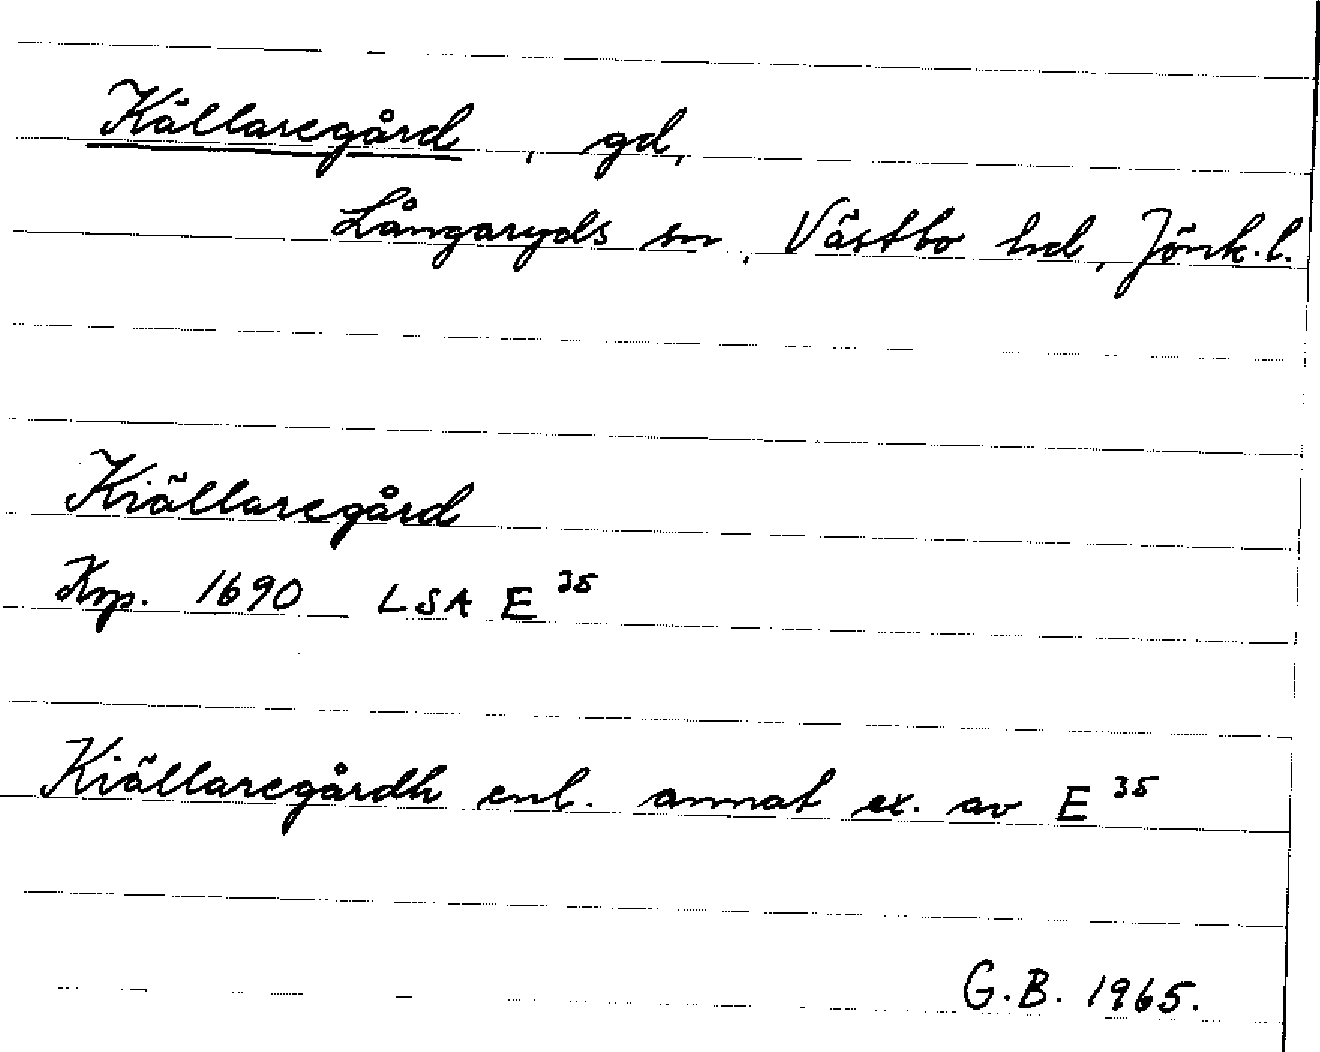 Källaregård, gd,
Långaryds sn, Västbo hd, Jönk.l.
Kiällaregård
Krp. 1690 LSA E 35
Kiällaregårdh enl. annat ex. av E 35
G.B. 1965.